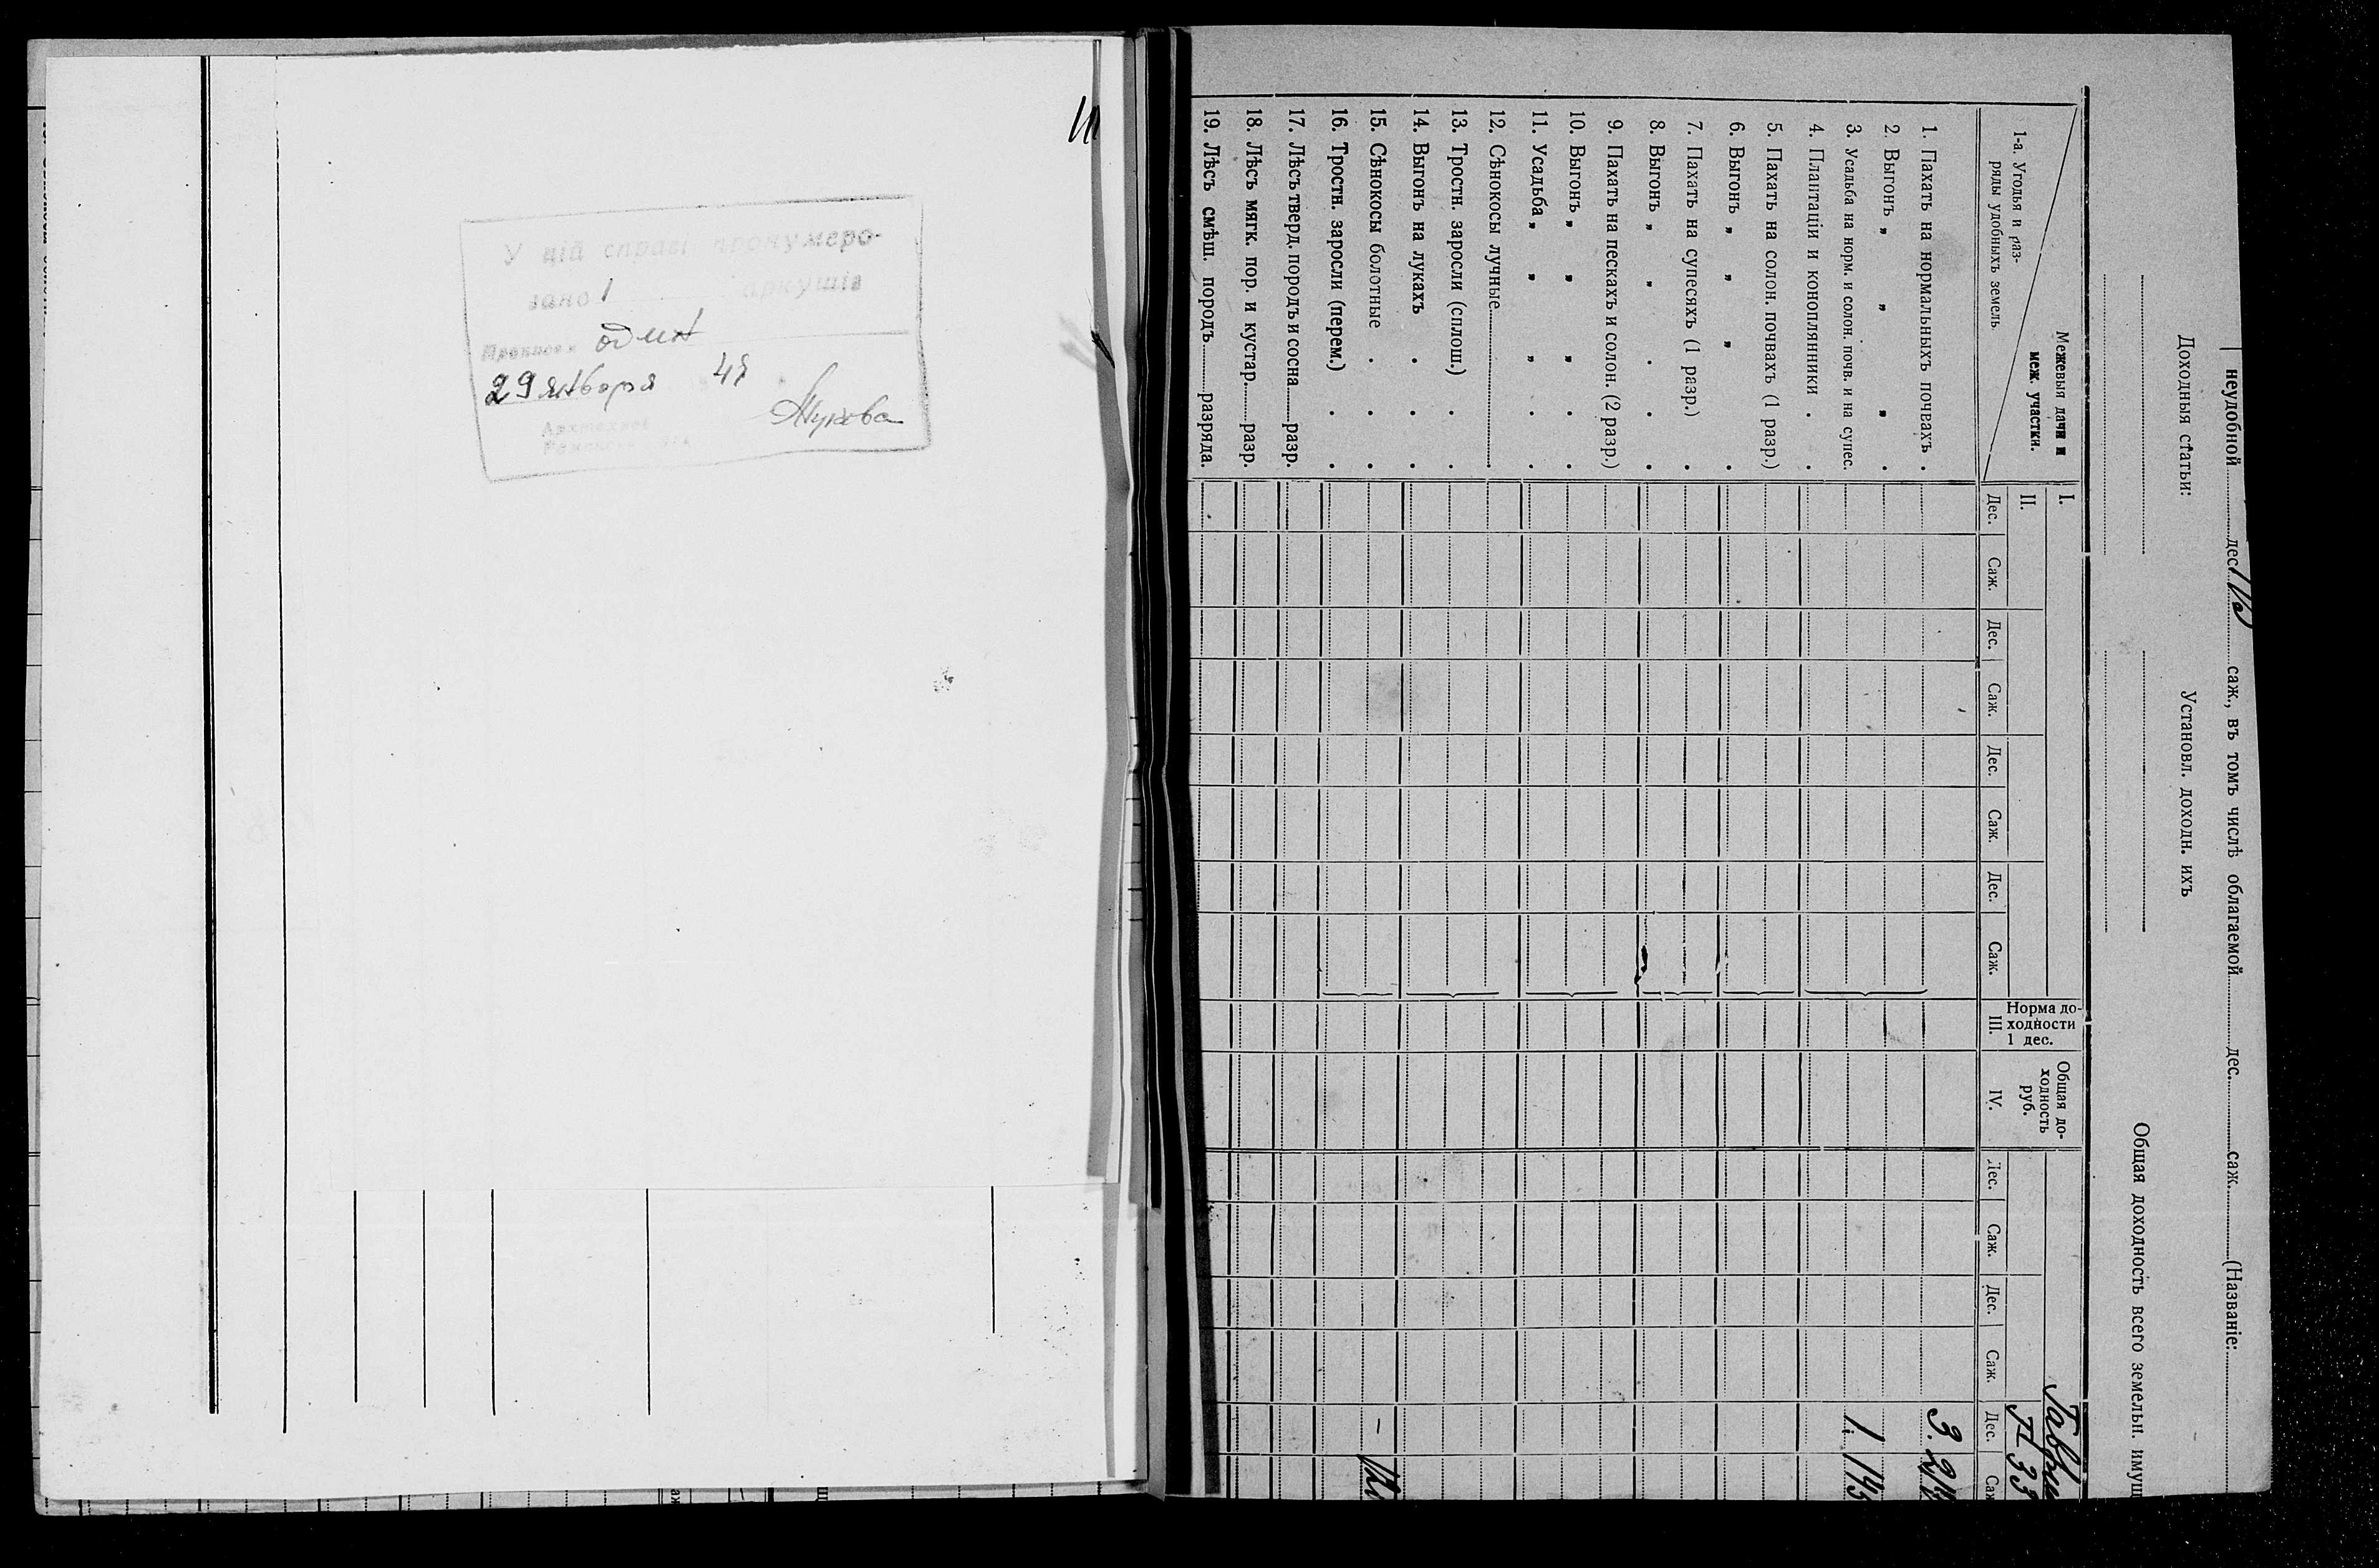 У цій справі пронумеро-
вано 1 аркушів
один
29 января 47
неудобной дес. саж., въ томъ числѣ облагаемой дес. саж. (Названіе:
Доходныя статьи: Установл. доходн. ихъ
Общая доходность всего земельн. имущ
Межевыя дачи и
меж. участки.
1-а. Угодья и раз-
ряды удобныхъ земель.
I.
II.
Дес. Саж. Дес. Саж. Дес. Саж. Дес. Саж.
Норма до-
ходности
1 дес.
III.
Общая до-
ходность
руб.
IV.
Дес. Саж. Дес. Саж. Дес. Саж
33
1. Пахать на нормальныхъ почвахъ . 3.
2. Выгонъ „ „ „ .
3. Усадьба на норм. и солон. почв. и на супес. 1
4. Плантаціи и конопляники . .
5. Пахать на солон. почвахъ (1 разр.)
6. Выгонъ „ „ „ .
7. Пахать на супесяхъ (1 разр.) .
8. Выгонъ „ „ . . .
9. Пахать на пескахъ и солон. (2 разр.)
10. Выгонъ „ „ „ . .
11. Усадьба „ „ „ . .
12. Сѣнокосы лучные
13. Тростн. заросли (сплош.) . .
14. Выгонъ на лукахъ . . .
15. Сѣнокосы болотные . . . –
16. Тростн. заросли (перем.) . .
17. Лѣсъ тверд. породъ и сосна разр.
18. Лѣсъ мягк. пор. и кустар. разр.
19. Лѣсъ смѣш. породъ разряда.